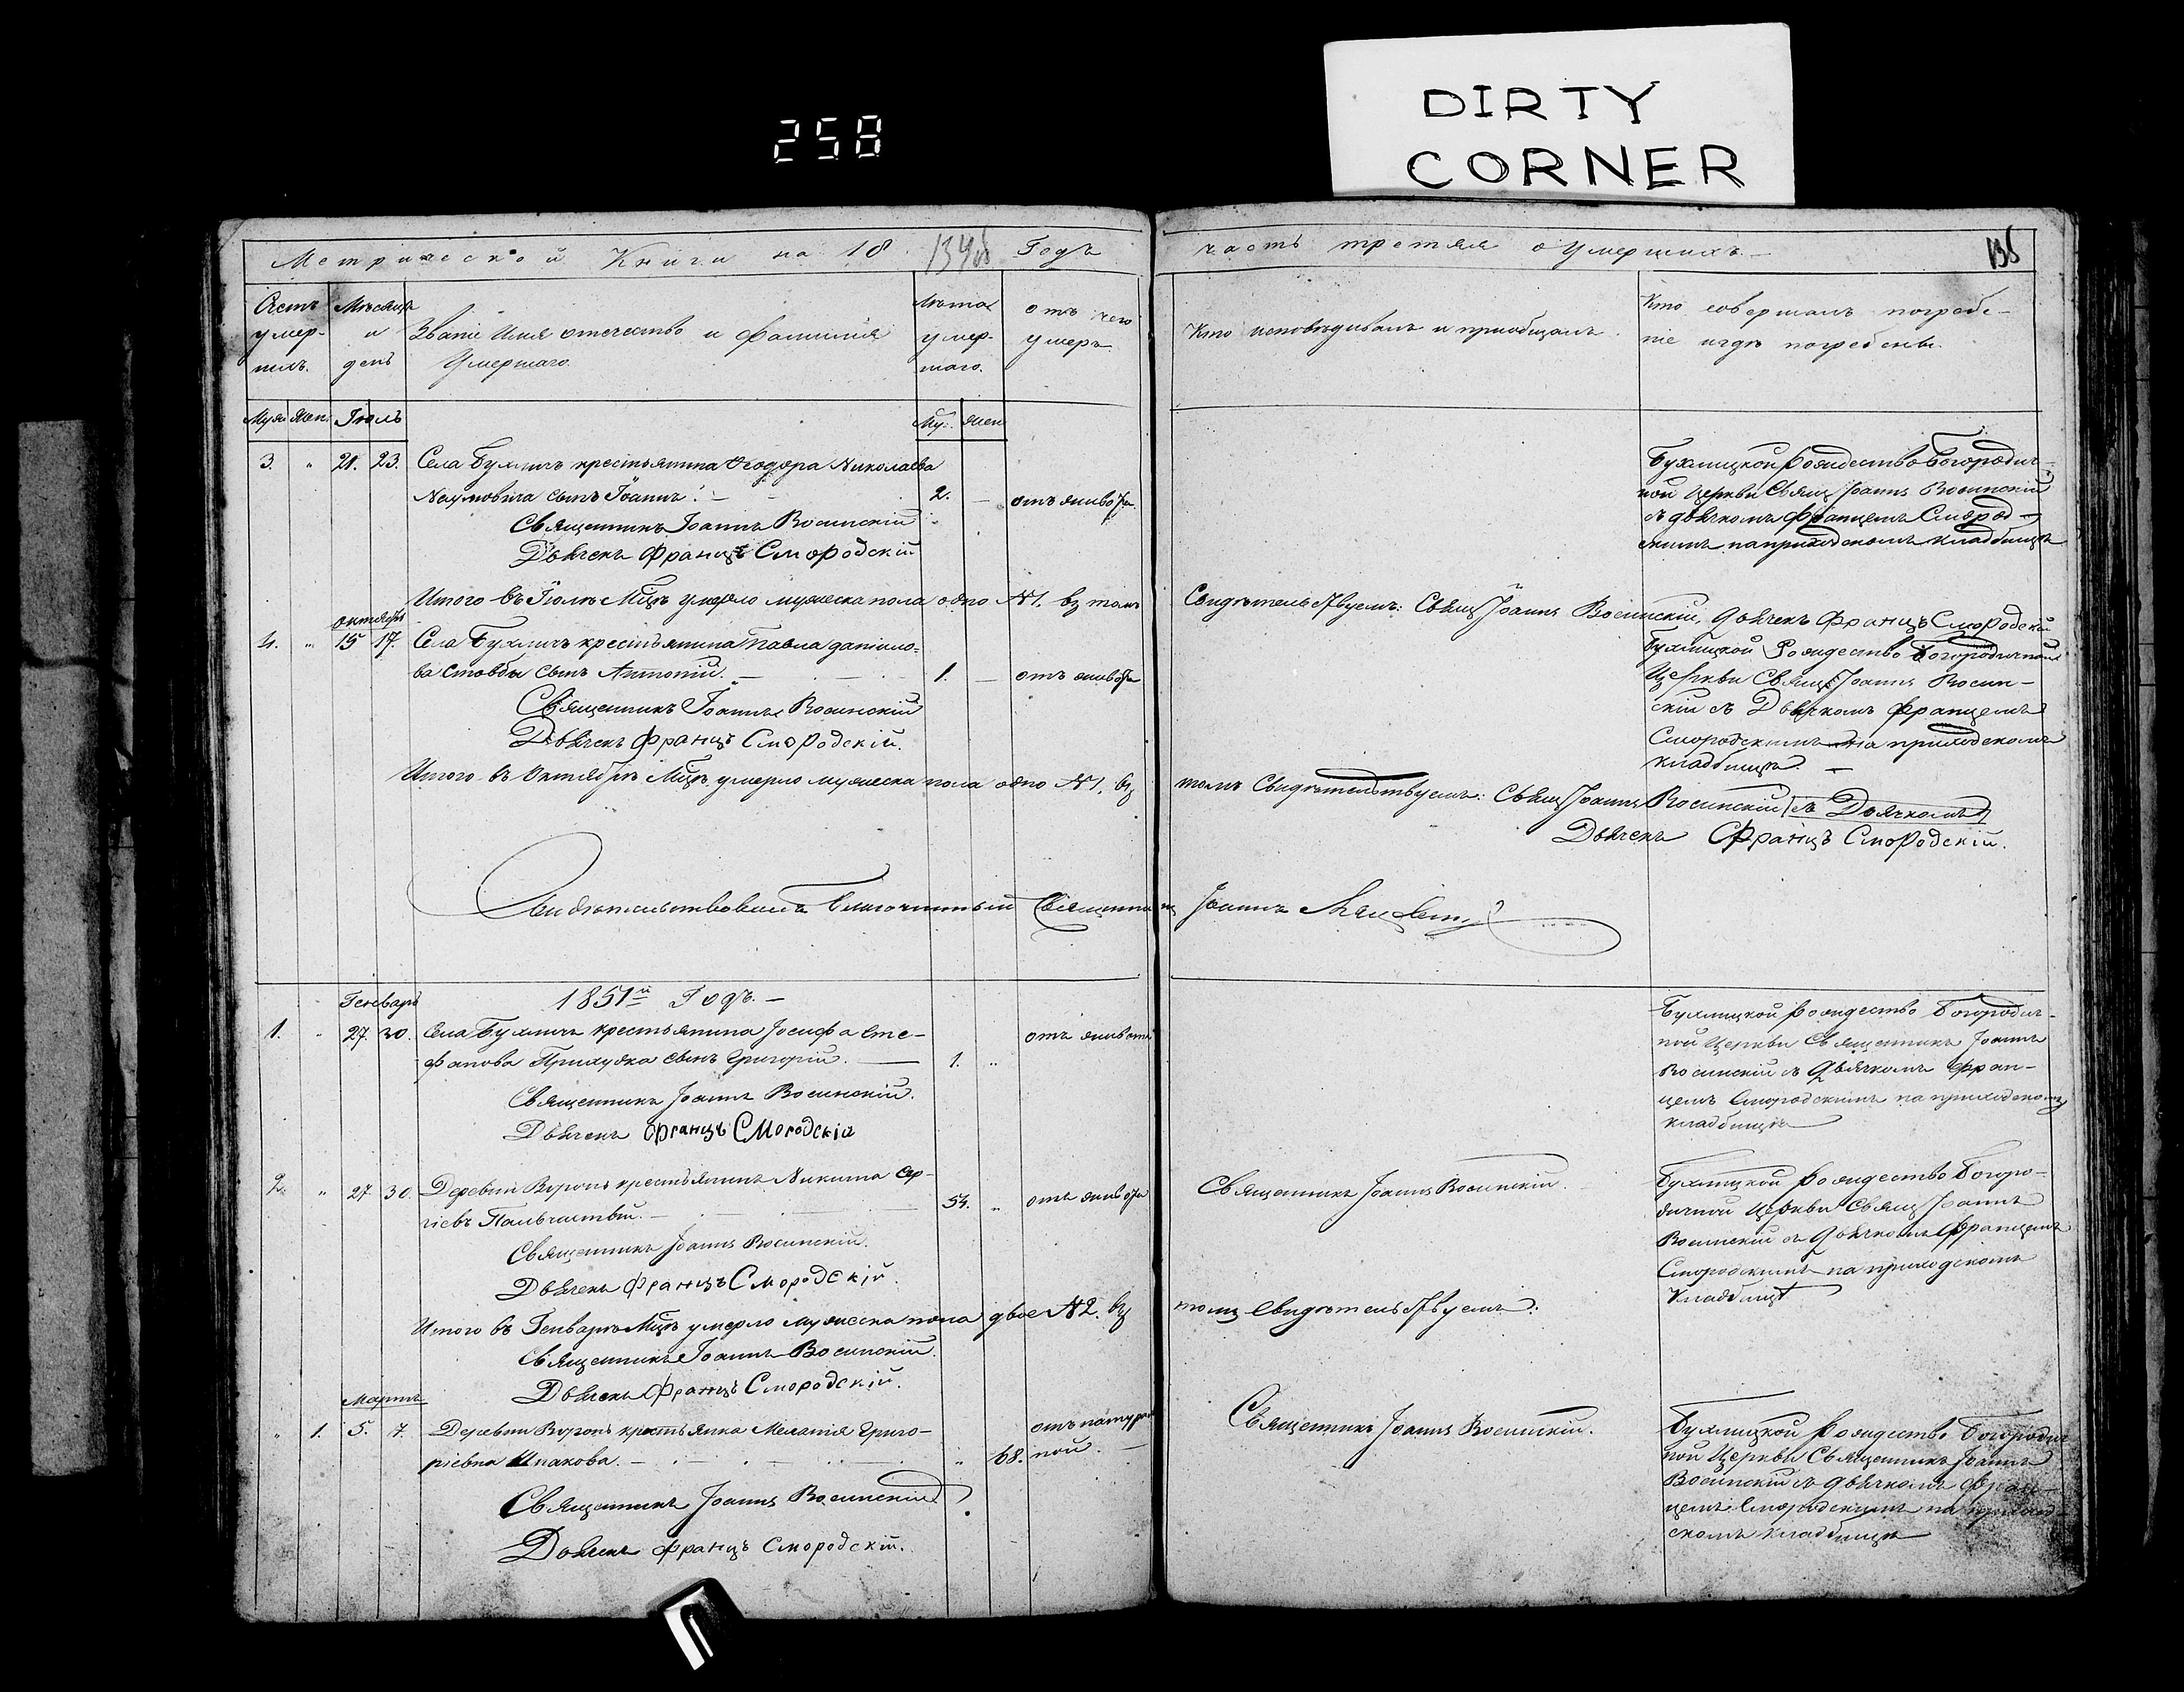 258
DIRTY
CORNER
Метрической Книги на 18 Годъ
часть третяя о умершихъ.
Счетъ умер-шихъ.
Мѣсяцъ и день
Званіе Имя отечество и фамилія
Умершаго.
Лѣта умер-шаго.
отъ чего умеръ.
Кто исповѣдывалъ и приобщалъ.
Кто совершалъ погребе-
ніе и гдѣ погребены.
Муж. Жен. Іюль
Му. жен
3. " 21. 23. Села Бухличъ крестьянина Ѳеодора Николаева
Наумовича сынъ Іоаннъ. — 2. — отъ
Священникъ Іоаннъ Росинскій
Дьячекъ Францъ Смородскій
Бухлицкой Рождество Богородич-
ной Церкви Свящ Іоаннъ Росинскій
съ дьячкомъ Францемъ Смород-
скимъ на приходскомъ кладбищѣ
Итого въ Іюлѣ Мцѣ умерло мужеска пола одно №1. въ томъ
Свидѣтельствуемъ: Свящ Іоаннъ Росинскій, дьячекъ Францъ Смородскій
октябрь
4. " 15 17. Села Бухличъ крестьянина Павла Даніило-
ва Стовбы сынъ Антоній. — 1. — отъ
Священникъ Іоаннъ Росинскій
Дьячекъ Францъ Смородскій.
Бухлицкой Рождество Богородичной
Церкви Свящ Іоаннъ Росин-
скій съ Дьячкомъ Францемъ
Смородскимъ на приходскомъ
кладбищѣ. —
Итого въ Октябрѣ Мцѣ умерло мужеска пола одно №1. въ
томъ Свидѣтельствуемъ: Свящ Іоаннъ Росинскій (съ Дьячкомъ)
Дьячекъ Францъ Смородскій.
Свидѣтельствовалъ Благочинный Священникъ Іоаннъ
1851й Годъ. —
Генварь
1. " 27. 30. Села Бухличъ крестьянина Іосифа Сте-
фанова Прилудка сынъ Григорій. — 1. " отъ
Священникъ Іоаннъ Росинскій.
Дьячекъ Францъ Смородскій
Бухлицкой Рождество Богородич-
ной Церкви Священникъ Іоаннъ
Росинскій съ Дьячкомъ Фран-
цемъ Смородскимъ на приходскомъ
кладбищѣ
2. " 27 30. Деревни Воронь крестьянинъ Никита Сер-
гіевъ — 54. " отъ
Священникъ Іоаннъ Росинскій.
Дьячекъ Францъ Смородскій.
Священникъ Іоаннъ Росинскій.
Бухлицкой Рождество Богоро-
дичной Церкви Свящ Іоаннъ
Росинскій съ Дьячкомъ Францемъ
Смородскимъ на приходскомъ
Кладбищѣ
Итого въ Генварѣ Мцѣ умерло мужеска пола двое №2. въ
томъ Свидѣтельствуемъ:
Священникъ Іоаннъ Росинскій.
Дьячекъ Францъ Смородскій.
Мартъ
" 1. 5. 7. Деревни Воронь крестьянка Меланія Григо-
ріевна Шпакова. — " 68. отъ натураль
ной. —
Священникъ Іоаннъ Росинскій
Дьячекъ Францъ Смородскій.
Священникъ Іоаннъ Росинскій.
Бухлицкой Рождество Богородич
ной Церкви Священникъ Іоаннъ
Росинскій съ дьячкомъ Фран-
цемъ Смородскимъ на приход-
скомъ кладбищѣ